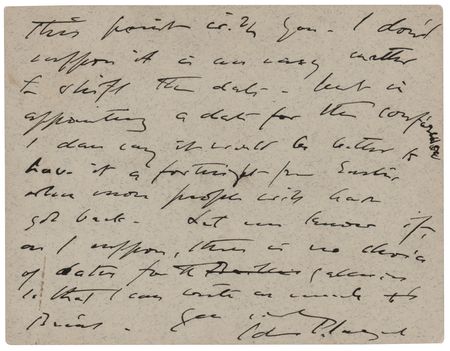 This point with you. I don't
suppose it is an easy matter
to shift the date - but in
appointing a date for the conference
I dare say it would be better to
have it a fortnight from Easter,
when more people will have
got back. Let me know if,
as I suppose, there is no choice
of dates for the galleries
so that I can write as much to
. You